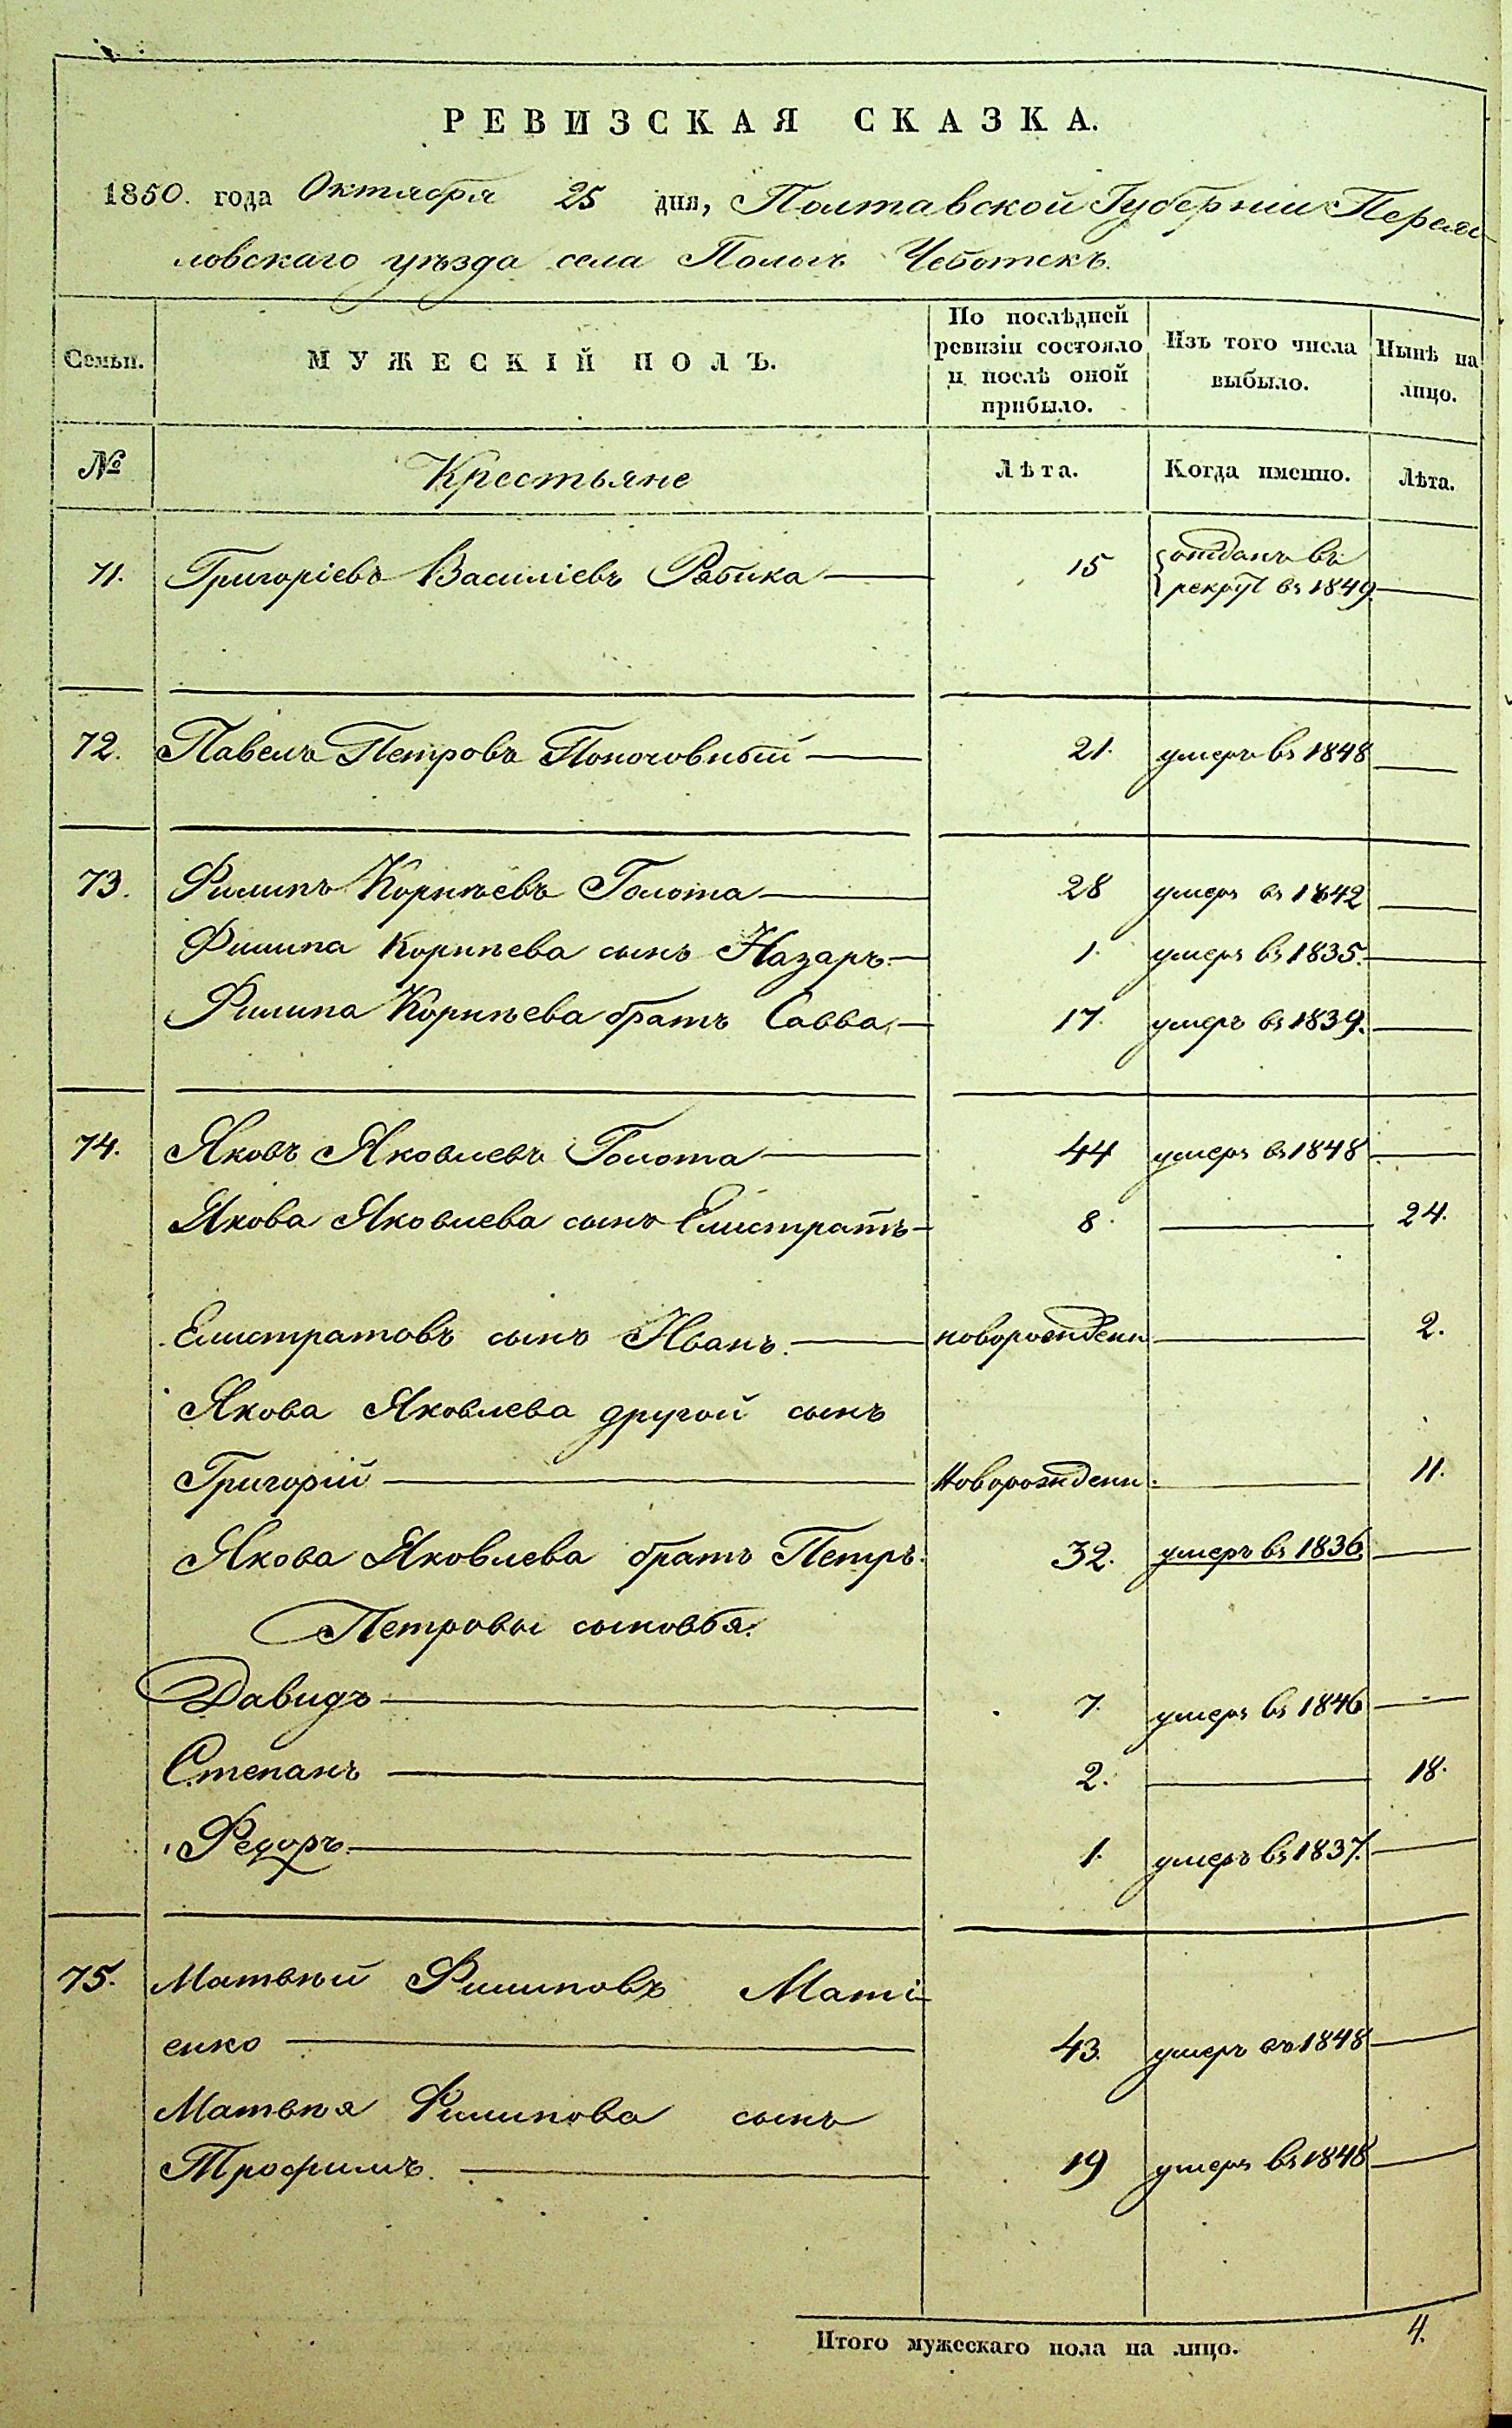 РЕВИЗСКАЯ СКАЗКА.
1850. года Октября 25 дня, Полтавской Губерніи Переяс
ловскаго уѣзда села Пологъ Чеботокъ.
Семьи. МУЖЕСКІЙ ПОЛЪ. По послѣдней ревизіи состояло и послѣ оной прибыло. Изъ того числа выбыло. Нынѣ на лицо.
№ Крестьяне Лѣта. Когда именно. Лѣта.
71. Григоріевъ Василіевъ Рябика 15 отданъ въ
рекрут въ 1849
72. Павелъ Петровъ Поночовный 21. умеръ въ 1848
73. Филипъ Корнѣевъ Голота 28 умеръ въ 1842
Филипа Корнѣева сынъ Назаръ. 1. умеръ въ 1835.
Филипа Корнѣева братъ Савва 17. умеръ въ 1839.
74. Яковъ Яковлевъ Голота 44 умеръ въ 1848
Якова Яковлева сынъ Елистратъ 8. 24.
Елистратовъ сынъ Иванъ. новорожденн 2.
Якова Яковлева другой сынъ
Григорій Новорожденн. 11.
Якова Яковлева братъ Петръ. 32. умеръ въ 1836
Петровы сыновья.
Давидъ 7. умеръ въ 1846
Степанъ 2. 18.
Федоръ. 1. умеръ въ 1837.
75. Матвѣй Филиповъ Маті
енко 43. умеръ въ 1848
Матвѣя Филипова сынъ
Трофимъ. 19 умеръ въ 1848
Итого мужескаго пола на лицо. 4.